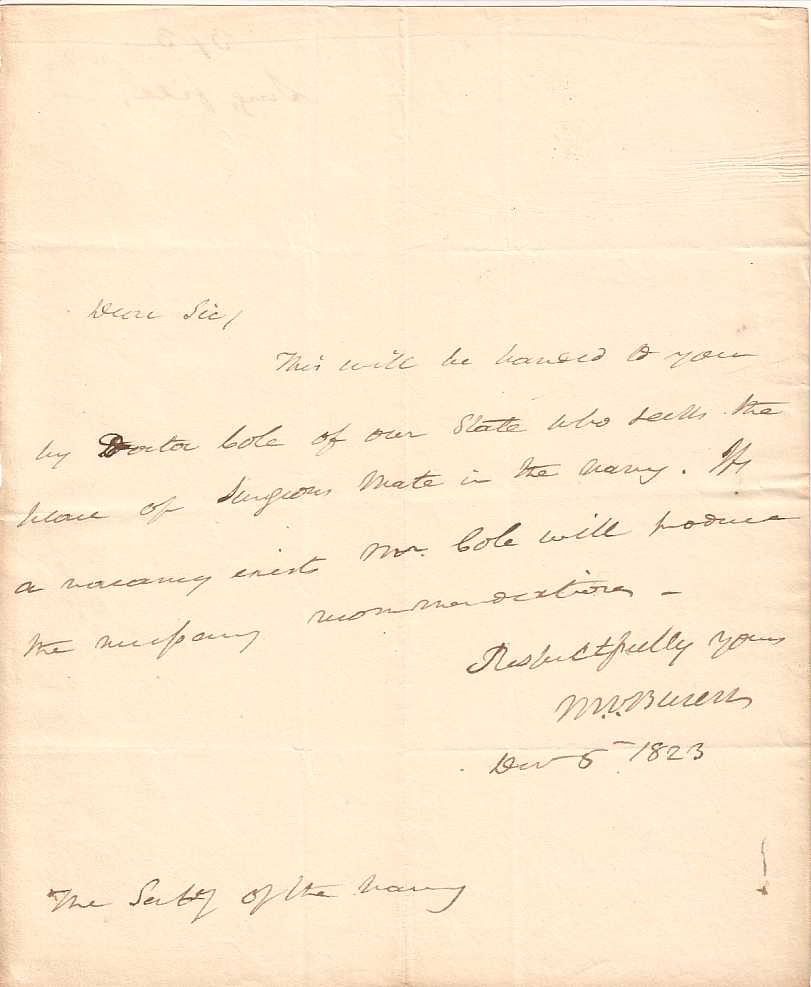 Dear Sir,
This will be handed to you
by Doctor Cole of our State who seeks the
place of Surgeons Mate in the Navy. If
a vacancy exists Mr. Cole will produce
the necessary recommendations -
Respectfully yours
M. V. Buren
Dec 5 1823
The Secty of the Navy